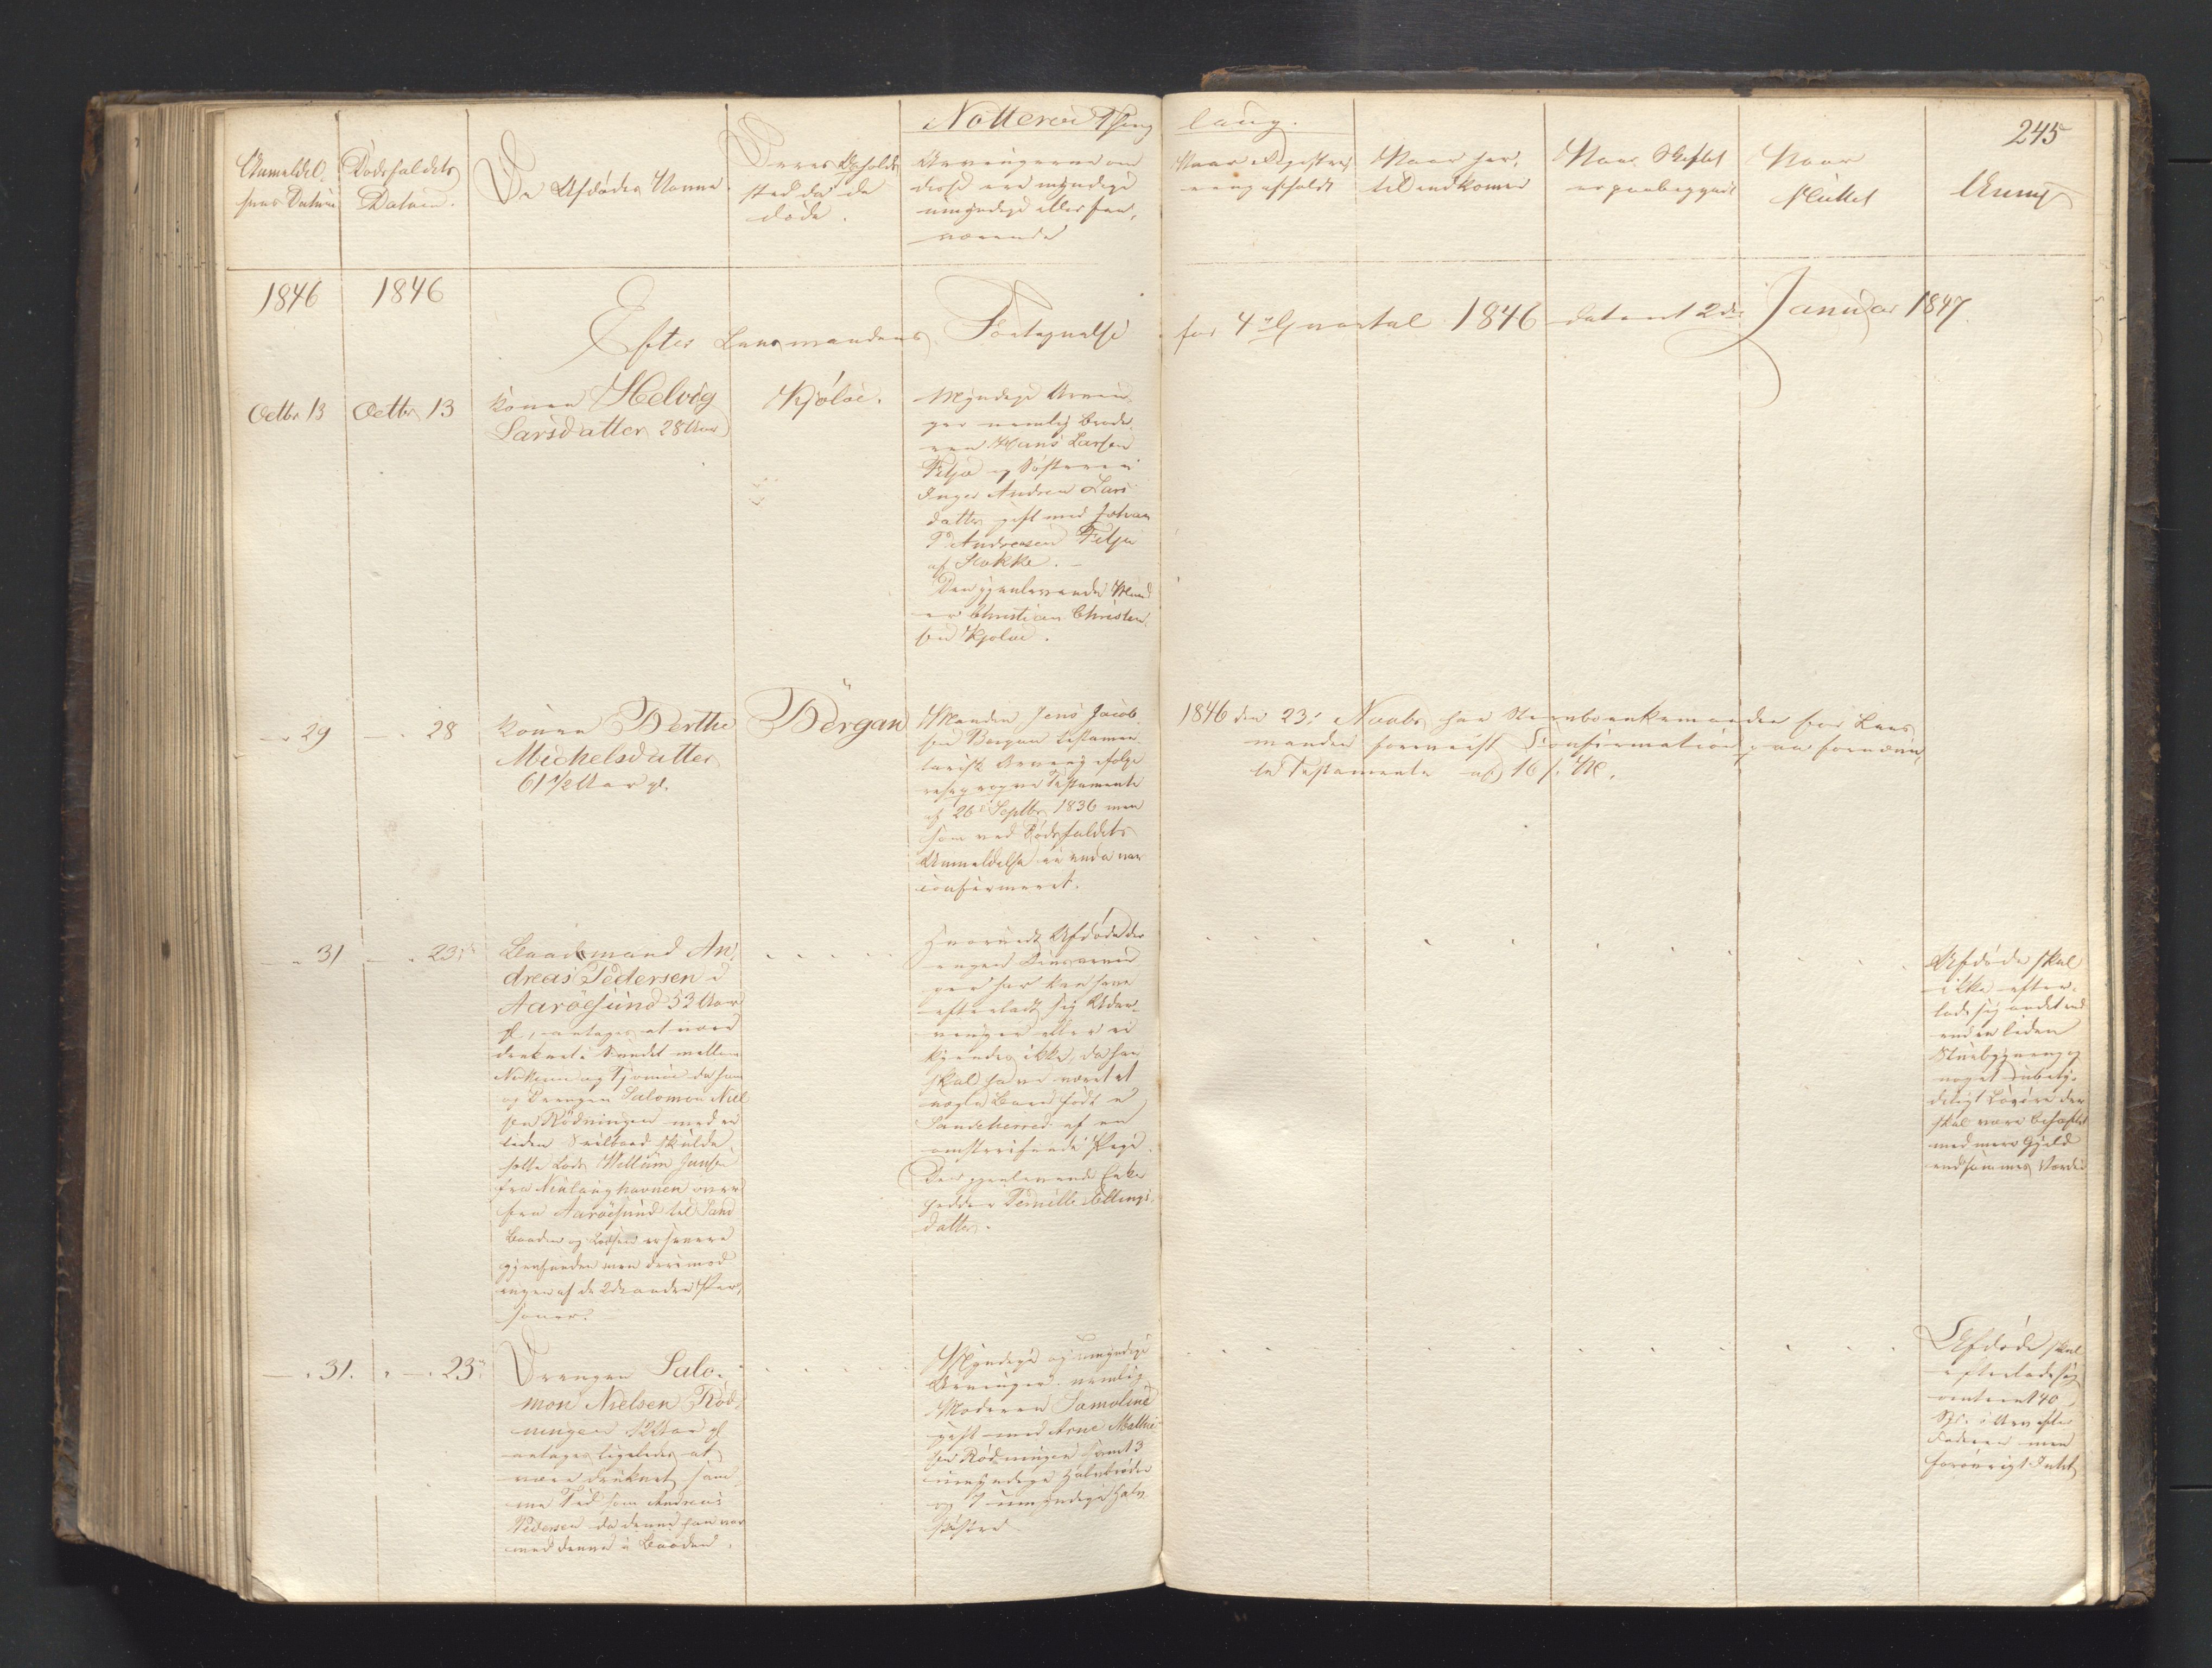 Nötteröe Thing laug.
245
Anmeldel=
sens Datum
Dødsfaldets
Datum.
De Afdødes Navne.
Deres Opholds
sted da de
døde.
Arvingerne om
disse ere myndige
umyndige eller fra,
værende
Naar Registre,
ring afholdt
Naar her,
til indkommer
Naar Skiftet
er paabegyndt
Naar
sluttet
Anmj
1846
1846
Efter Lensmandens Fortegnelse for 4de Qvartal 1846 dateret 2den Januar 1847
Octbr 13
Octbr 13
Konen Helvig
Larsdatter 28 Aar
Kjöløe.
Myndige Arvin=
ger nemlig Brode,
ren Hans Larsen
Filja og Søsteren
Inger Andrea Lars
datter gift med Johan
P. Andresen Filja
af Stokke. –
Den gjenlevende Mand
er Christian Christen,
sen Kjøløe.
— " 29
— " 28
Konen Berthe
Michelsdatter
61 1/2 Aar gl.
Børgan
Manden Jens Jacob,
sen Borgan testamen,
tarisk Arving ifølge
reciproque Testamente
af 26de Septbr 1836 men
som ved Dødsfaldets
Anmeldelse ei endu var
confirmeret.
1846 den 23: Novbr har Stervboenkemanden for Lens
manden foreviist Confirmation paa fornævn,
te Testamente af 16 s. M.
— " 31
— " 23de
Baadsmand An,
dreas Pedersen i
Aarøesund 53 Aar
gl, antages at være
druknet i Sundet mellem
Nøtterøe og Tjømøe da han
og Drengen Salomon Niel
sen Rødningen med en
liden Seilbaad skulde
sætte Lods Willum Jansen
fra Neslanghavnen over
fra Aarøesund til Sand
Baaden og Lodsen er senere
gjenfunden men derimod
ingen af de 2de andre Per,
soner.
Hvorvidt Afdøde der
ingen Livsarvin
ger har kan have
efterladt sig Udar=
vinger eller ei
kjendes ikke, da han
skal have været et
uægte Barn født i
Sandeherred af en
omstreifende Pige.
Den gjenlevende Enke
hedder Pernille Ellings
datter.
Afdøde skal
ikke efter,
lade sig andet end
end en liden
Stuebygning og
noget ubety,
deligt Løsøre der
skal være behæftet
med mere Gjeld
end sammes Værdie
— " 31.
" — " 23de
Drengen Salo,
mon Nielsen Rød,
ningen 12 Aar gl
antages ligeledes at
være druknet sam
me Tid som Andreas
Pedersen da denne han var
med denne i Baaden.
Myndige og umyndige
Arvinger nemlig
Moderen Samoline
gift med Arne Mathie
sen Rødningen samt 3
umyndige Halvbrødre
og 1 umyndige Halv
søster
Afdøde skal
efterlade sig
omtrent 40
Spd. i Arv efter
Faderen men
forøvrigt Intet